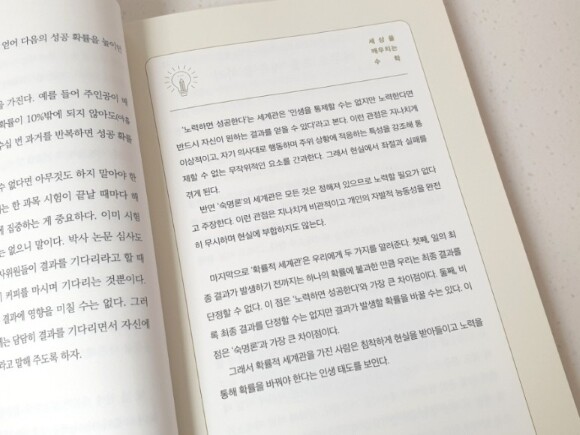 얻어 다음의 성공 확률을 높이
가진다. 예를 들어 주인공이 매
확률이 10%밖에 되지 않아도(아홉
수십 번 과거를 반복하면 성공 확률
수 없다면 아무것도 하지 말아야 한
는 한 과목 시험이 끝날 때마다 책
에 집중하는 게 중요하다. 이미 시험
는 없으니 말이다. 박사 논문 심사도
사위원들이 결과를 기다리라고 할 때
커피를 마시며 기다리는 것뿐이다.
결과에 영향을 미칠 수는 없다. 그러
는 담담히 결과를 기다리면서 자신에
라고 말해 주도록 하자.
세상을
배우치는
수학
'노력하면 성공한다'는 세계관은 '인생을 통제할 수는 없지만 노력한다면
반드시 자신이 원하는 결과를 얻을 수 있다'라고 본다. 이런 관점은 지나치게
이상적이고, 자기 의사대로 행동하며 주위 상황에 적응하는 특성을 강조해 통
제할 수 없는 무작위적인 요소를 간과한다. 그래서 현실에서 좌절과 실패를
겪게 된다.
반면 '숙명론'의 세계관은 모든 것은 정해져 있으므로 노력할 필요가 없다
고 주장한다. 이런 관점은 지나치게 비관적이고 개인의 자발적 능동성을 완전
히 무시하며 현실에 부합하지도 않는다.
마지막으로 '확률적 세계관'은 우리에게 두 가지를 알려준다. 첫째, 일의 최
종 결과가 발생하기 전까지는 하나의 확률에 불과한 만큼 우리는 최종 결과를
단정할 수 없다. 이 점은 '노력하면 성공한다'와 가장 큰 차이점이다. 둘째, 비
록 최종 결과를 단정할 수는 없지만 결과가 발생할 확률을 바꿀 수는 있다. 이
점은 '숙명론'과 가장 큰 차이점이다.
그래서 확률적 세계관을 가진 사람은 침착하게 현실을 받아들이고 노력을
통해 확률을 바꿔야 한다는 인생 태도를 보인다.